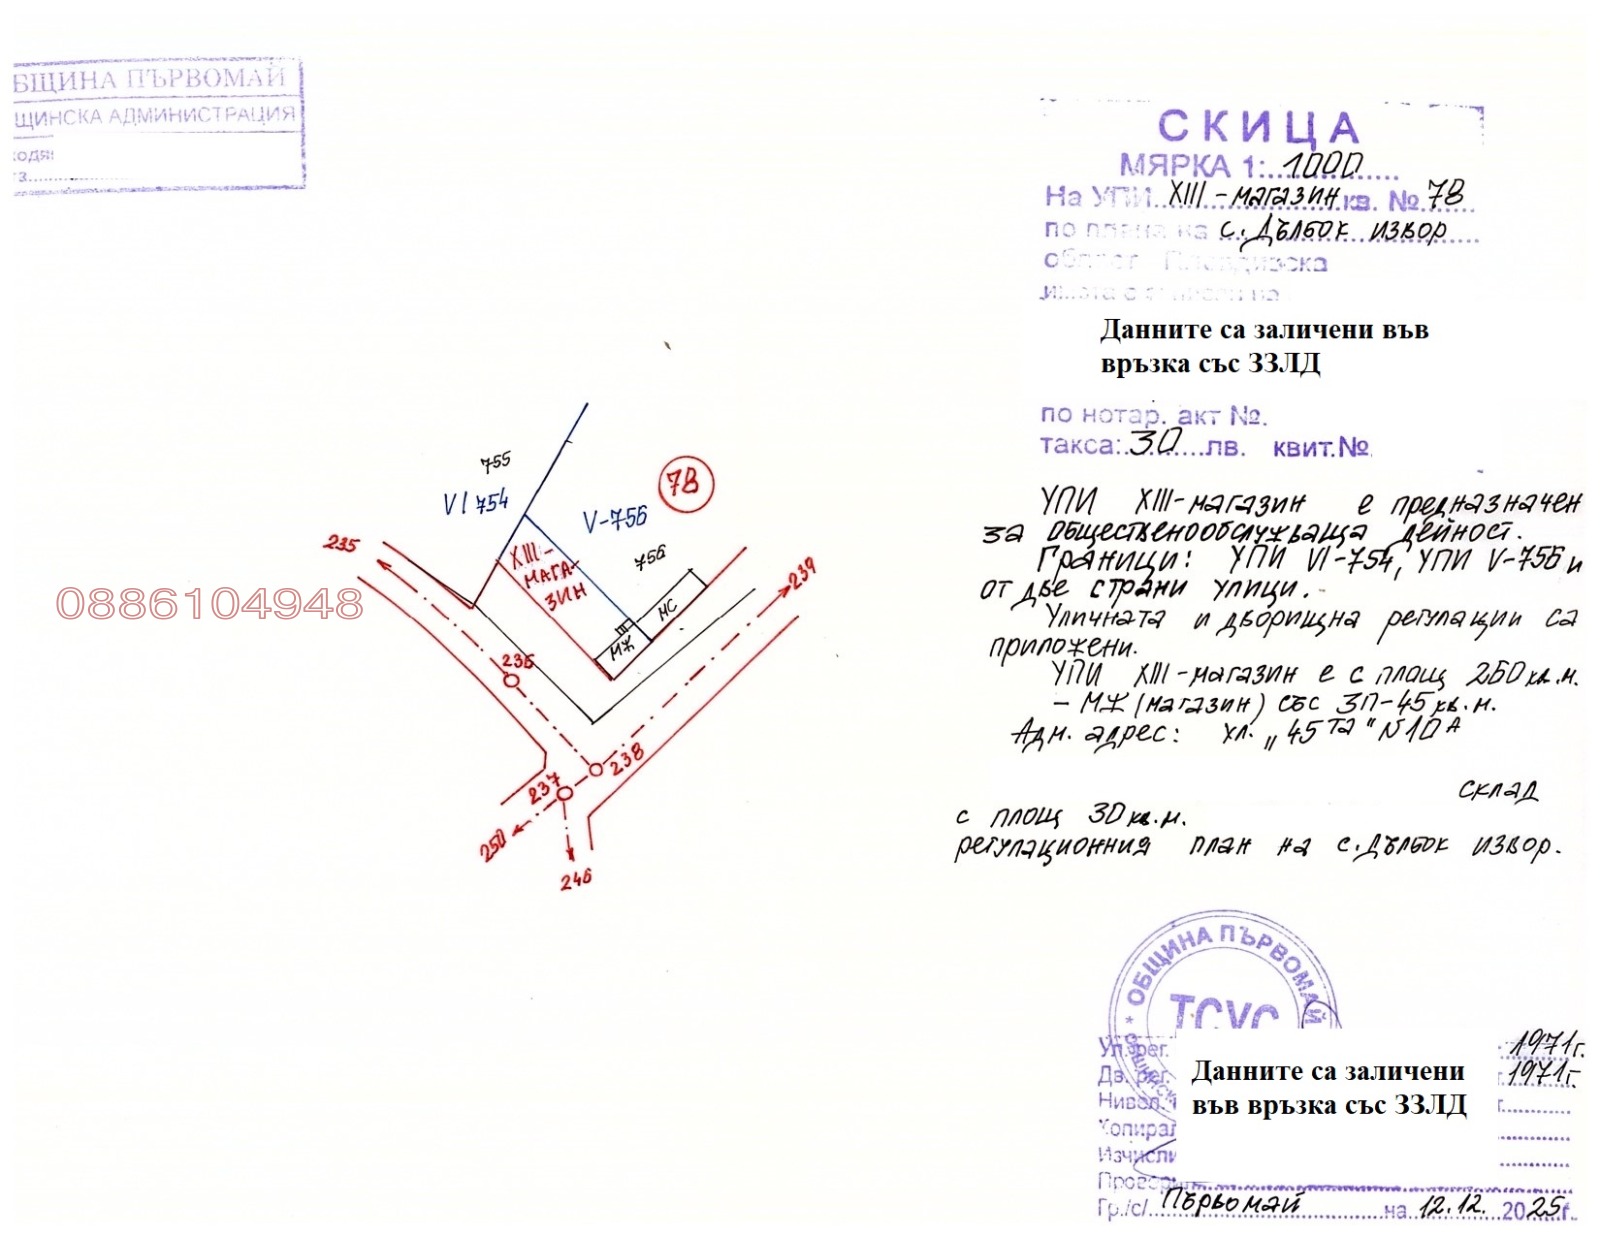 БЩИНА ПЪРВОМАЙ
ЩИНСКА АДМИНИСТРАЦИЯ
СКИЦА
МЯРКА 1:...1000
На УПИ XIII - магазин кв. № 78
по плана на с. Дълбок извор
област Пловдивска
Данните са заличени във
връзка със ЗЗЛД
по нотар. акт №.
такса: 30 лв. квит.№
УПИ XIII-магазин е предназначен
за общественообслужваща дейност.
Граници: УПИ VI-754, УПИ V-756 и
от две страни улици.
Уличната и дворищна регулации са
приложени.
УПИ XIII-магазин е с площ 260 кв.м.
- МЖ (магазин) със ЗП-45 кв.м.
Адм. адрес: ул. „45та" №10А
склад
с площ 30 кв.м.
регулационния план на с. Дълбок извор.
755
VI 754
V-756
78
756
XIII -
МАГА-
ЗИН
МС
МЖ
235
239
0886104948
236
238
237
250
246
ОБЩИНА ПЪРВОМАЙ
ТСУС
Ул. рег. 1971г.
Дв. рег. 1971г.
Данните са заличени
във връзка със ЗЗЛД
Нивел.
Копирал
Изчисли
Проверил
Гр./с/ Първомай на 12.12. 2025г.